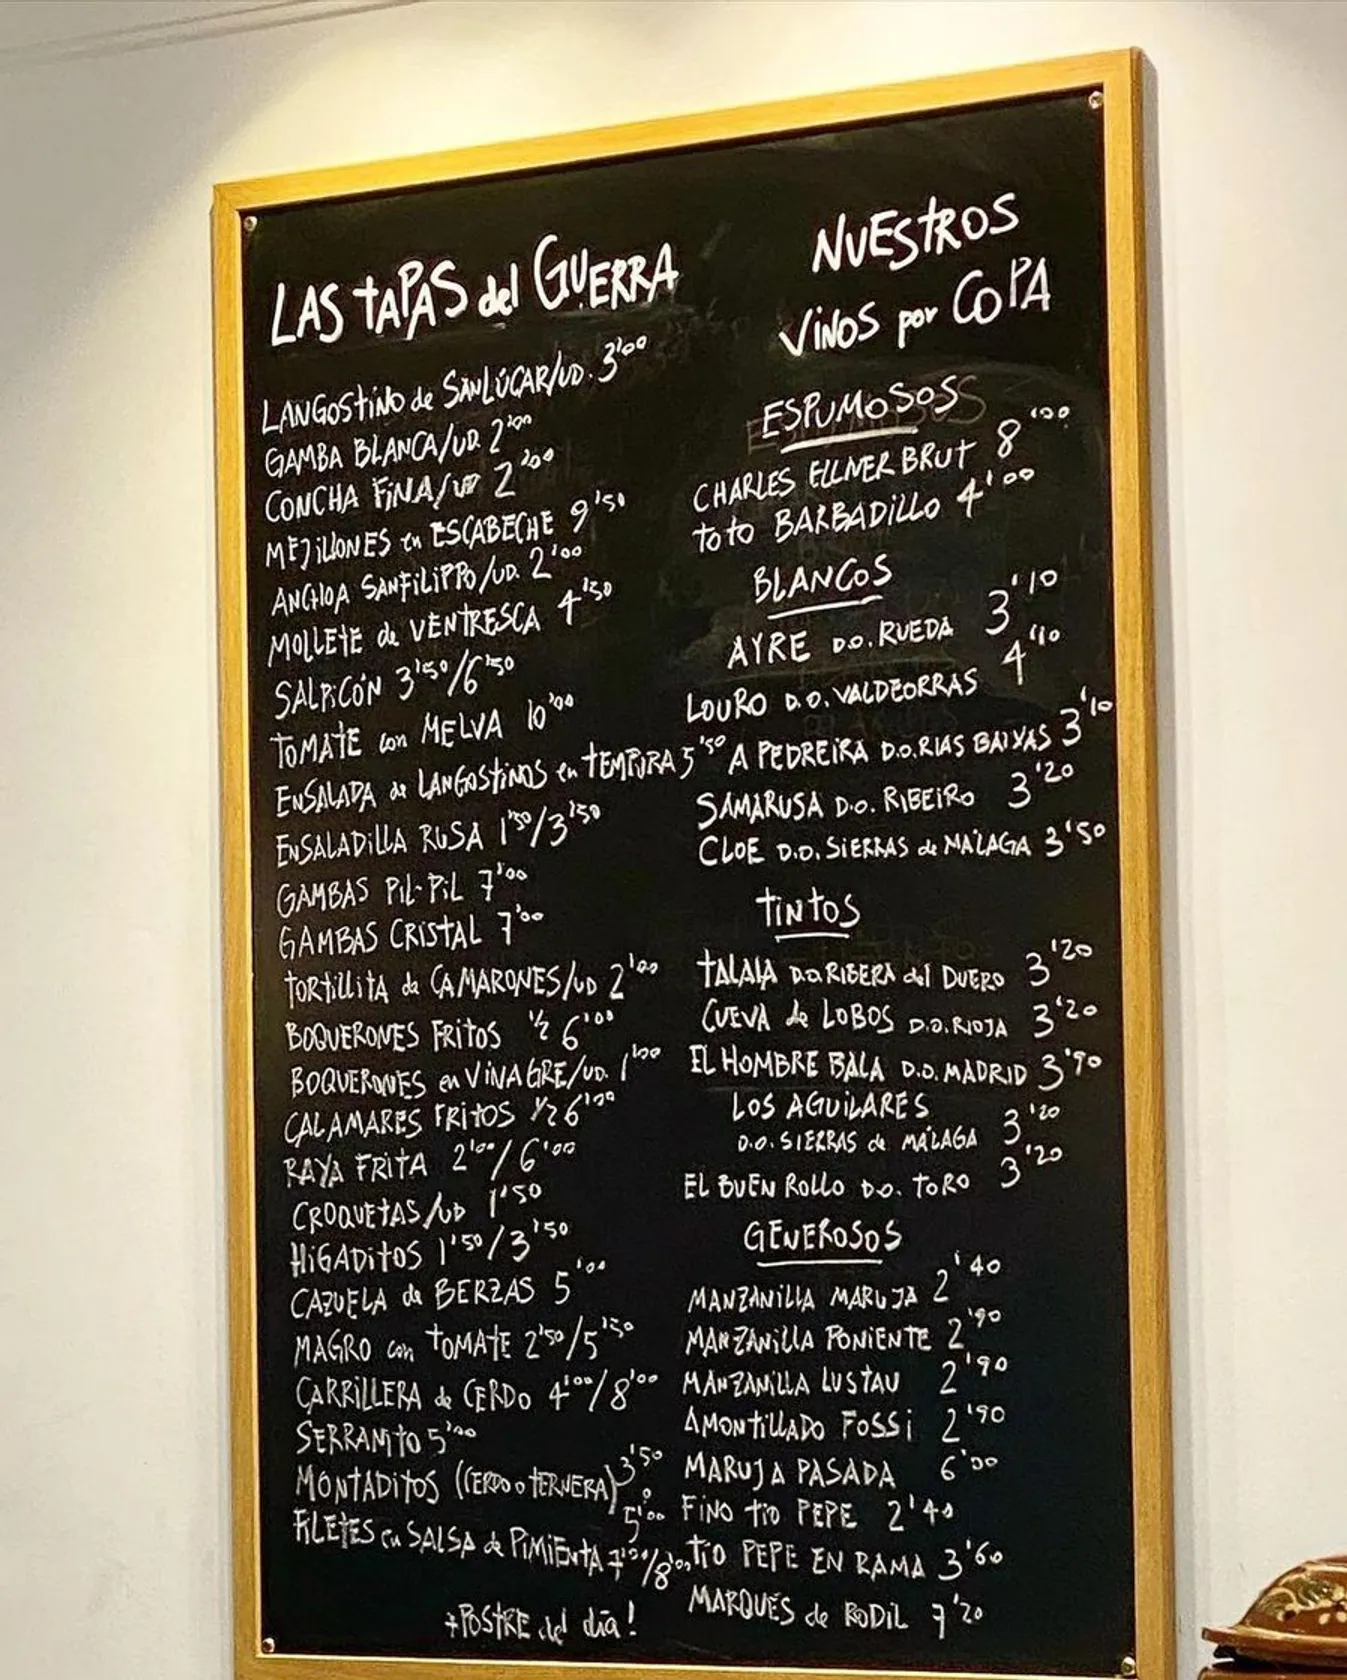 LAS TAPAS del GUERRA
LANGOSTINO de SANLÚCAR/UD. 3'00
GAMBA BLANCA/UD. 2'00
CONCHA FINA/UD 2'00
MEJILLONES en ESCABECHE 9'50
ANCHOA SANFILIPPO/UD. 2'00
MOLLETE de VENTRESCA 4'50
SALPICÓN 3'50/6'50
TOMATE con MELVA 10'00
ENSALADA de LANGOSTINOS en TEMPURA 5'50
ENSALADILLA RUSA 1'50/3'50
GAMBAS PIL-PIL 7'00
GAMBAS CRISTAL 7'00
TORTILLITA de CAMARONES/UD 2'00
BOQUERONES FRITOS 1/2 6'00
BOQUERONES en VINAGRE/UD. 1'00
CALAMARES FRITOS 1/2 6'00
RAYA FRITA 2'00/6'00
CROQUETAS/UD 1'50
HIGADITOS 1'50/3'50
CAZUELA de BERZAS 5'00
MAGRO con TOMATE 2'50/5'50
CARRILLERA de CERDO 4'00/8'00
SERRANITO 5'00
MONTADITOS (CERDO o TERNERA) 3'50 o 5'00
FILETES en SALSA de PIMIENTA 7'00/8'00
+POSTRE del día!
NUESTROS
VINOS por COPA
ESPUMOSOS
CHARLES ELLNER BRUT 8'00
TOTO BARBADILLO 4'00
BLANCOS
AYRE D.O. RUEDA 3'10
LOURO D.O. VALDEORRAS 4'10
A PEDREIRA D.O. RIAS BAIXAS 3'10
SAMARUSA D.O. RIBEIRO 3'20
CLOE D.O. SIERRAS de MÁLAGA 3'50
TINTOS
TALAIA D.O. RIBERA del DUERO 3'20
CUEVA de LOBOS D.O. RIOJA 3'20
EL HOMBRE BALA D.O. MADRID 3'90
LOS AGUILARES
D.O. SIERRAS de MÁLAGA 3'20
EL BUEN ROLLO D.O. TORO 3'20
GENEROSOS
MANZANILLA MARUJA 2'40
MANZANILLA PONIENTE 2'90
MANZANILLA LUSTAU 2'90
AMONTILLADO FOSSI 2'90
MARUJA PASADA 6'00
FINO TIO PEPE 2'40
TIO PEPE EN RAMA 3'60
MARQUÉS de RODIL 7'20